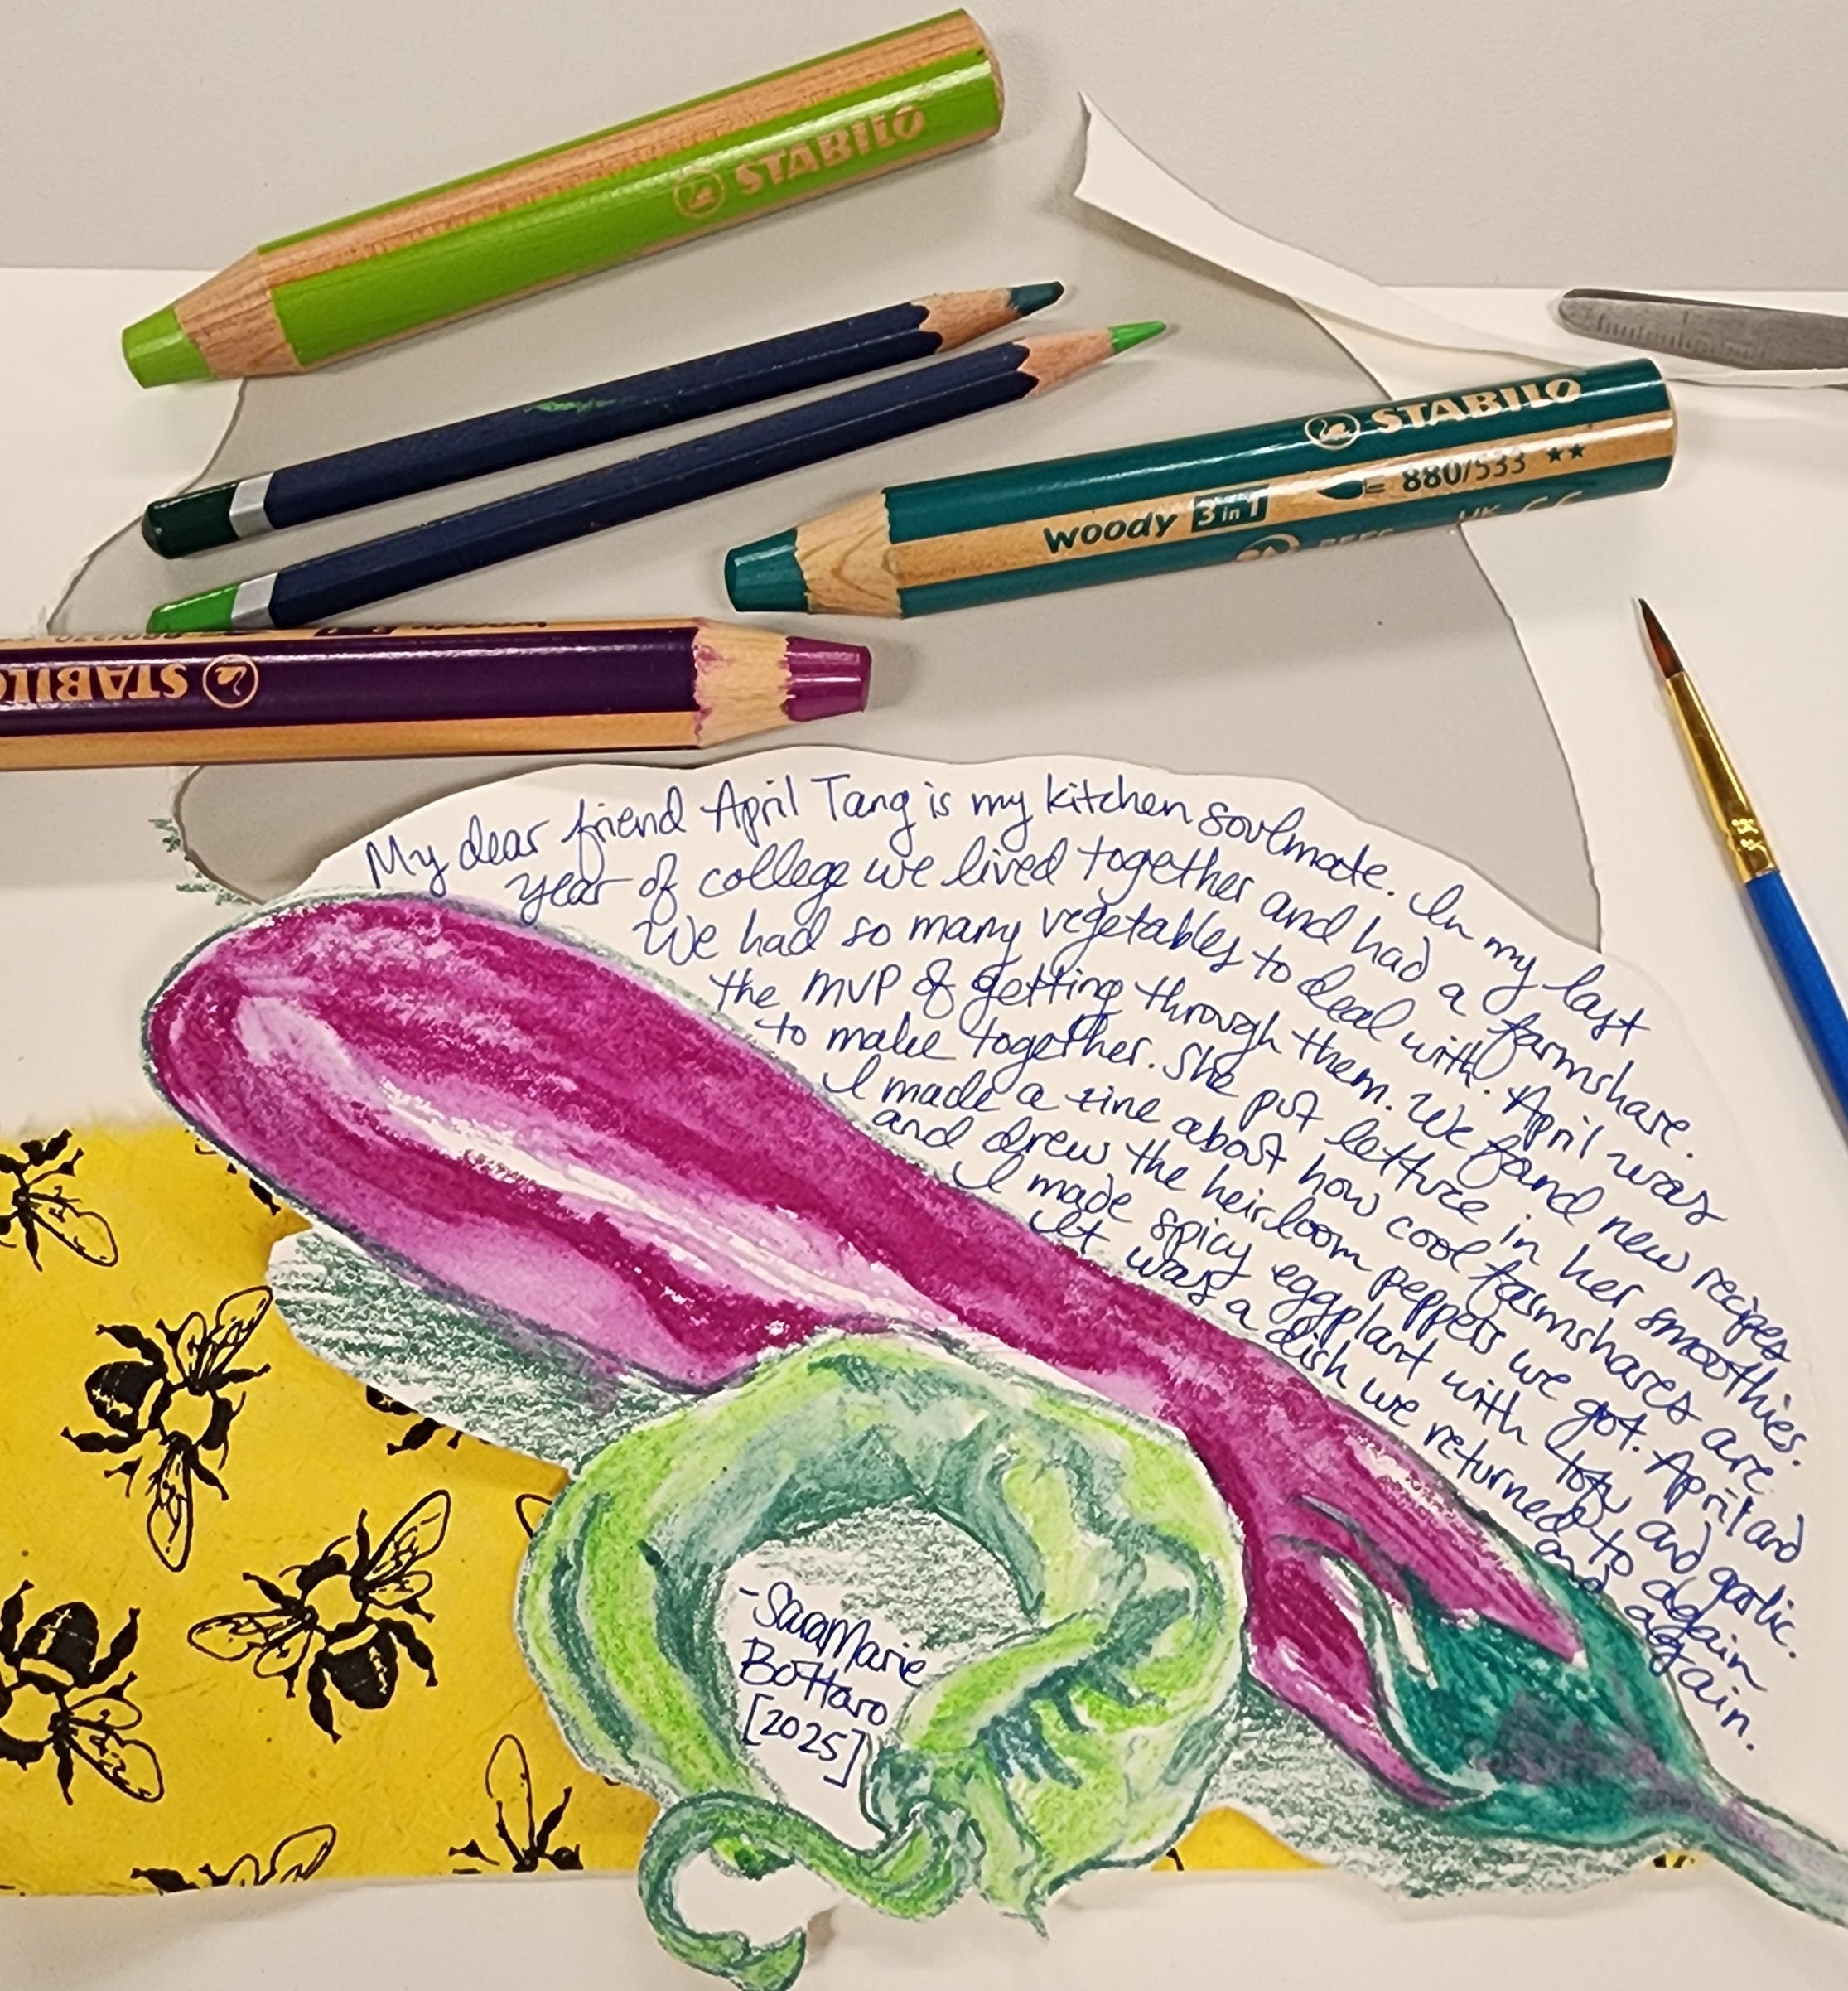 STABILO
STABILO
woody 3 in 1 880/533 ★★
STABILO
My dear friend April Tang is my kitchen soulmate. In my last
year of college we lived together and had a farmshare.
We had so many vegetables to deal with. April was
the MVP of getting through them. We found new recipes
to make together. She put lettuce in her smoothies.
I made a zine about how cool farmshares are
and drew the heirloom peppers we got. April and
I made spicy eggplant with tofu and garlic.
It was a dish we returned to again
and again.
-SaraMarie
Bottaro
[2025]